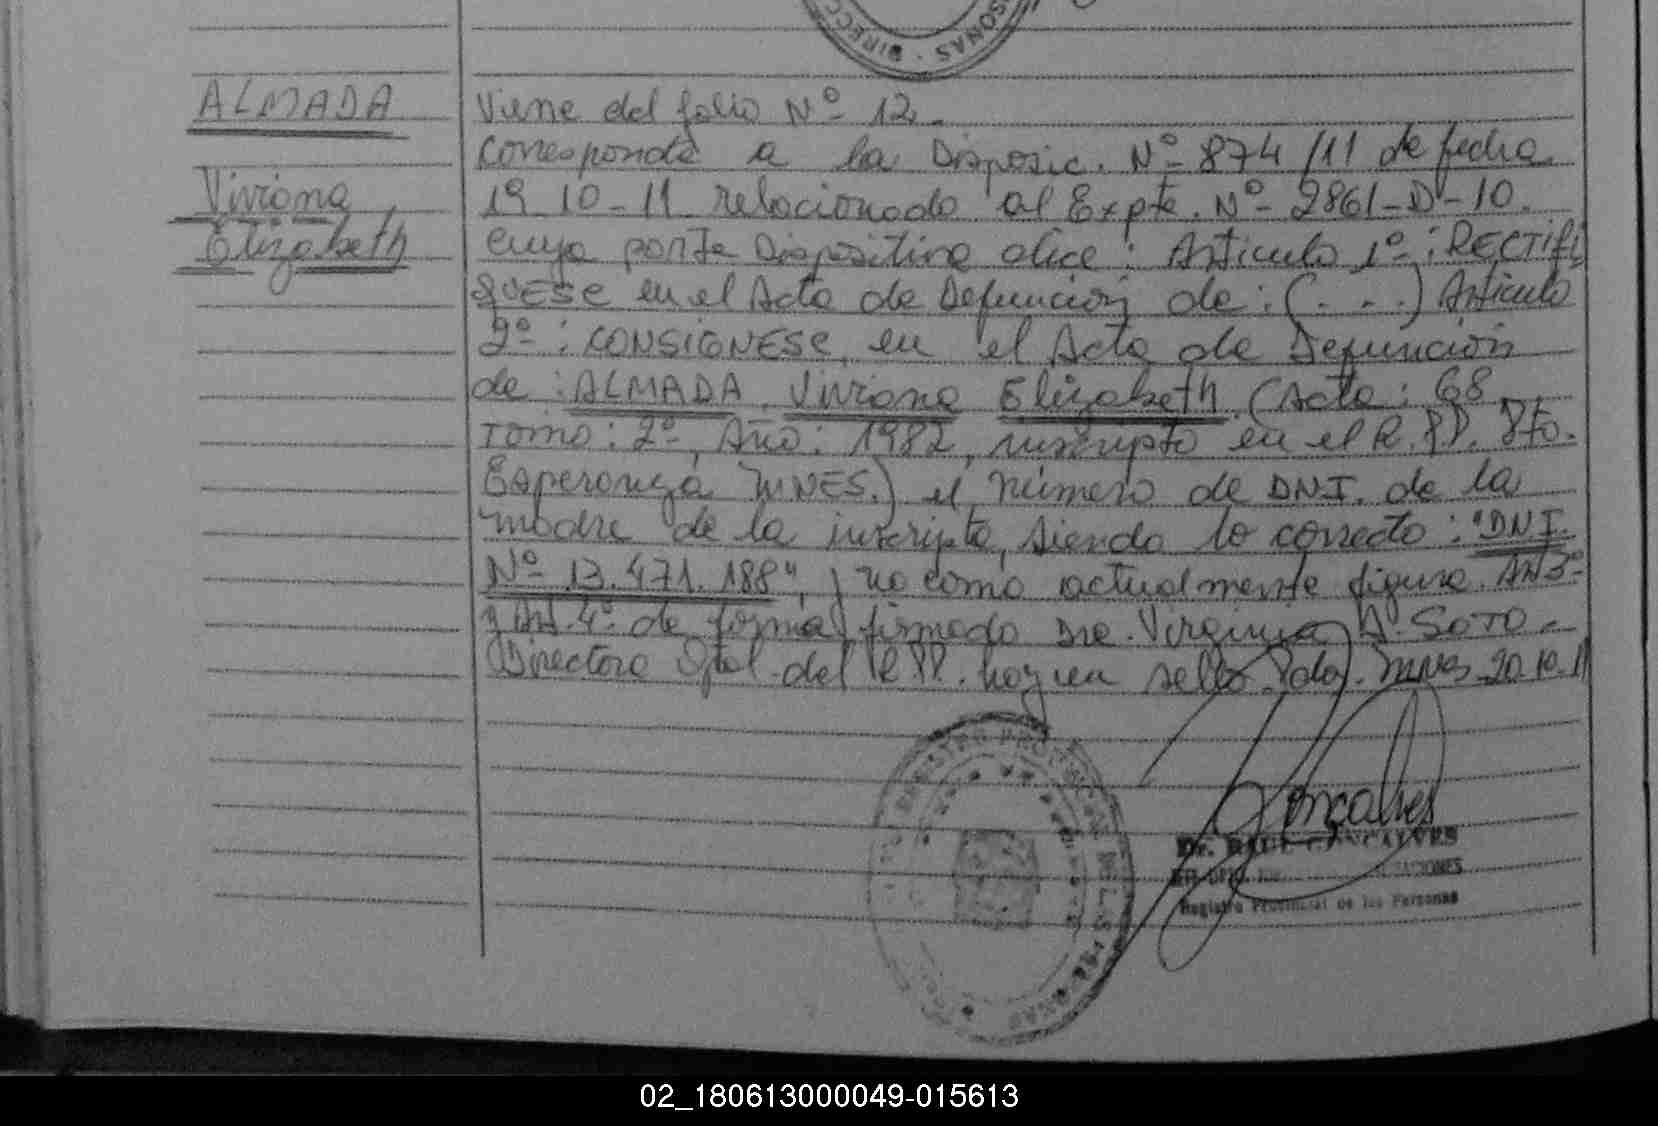 ALMADA
Viviana
Elizabeth
Viene del folio Nº 12.
Corresponde a la Disposic. Nº 874/11 de fecha
19-10-11 relacionado al Expte. Nº 2861-D-10.
cuya parte Dispositiva dice: Articulo 1º: RECTIFI
QUESE en el Acta de Defunción de: (...) Articulo
2º: CONSIGNESE, en el Acta de Defunción
de: ALMADA, Viviana Elizabeth. (Acta: 68
Tomo: 2º, Año: 1982, inscripta en el R.PP. Pto.
Esperanza MNES.) el número de DNI. de la
madre de la inscripta, siendo lo correcto: "DNI.
Nº 13.471.188", y no como actualmente figura. Art 3º
y Art. 4º de forma firmado Dra. Virginia A. SOTO.
Directora Gral. del R.PP. hay un sello. Pdas. Mnes 20.10.11
Gonçalves
Dr. RAUL GONCALVES
Registro Provincial de las Personas
REGISTRO PROVINCIAL DE LAS PERSONAS
02_180613000049-015613